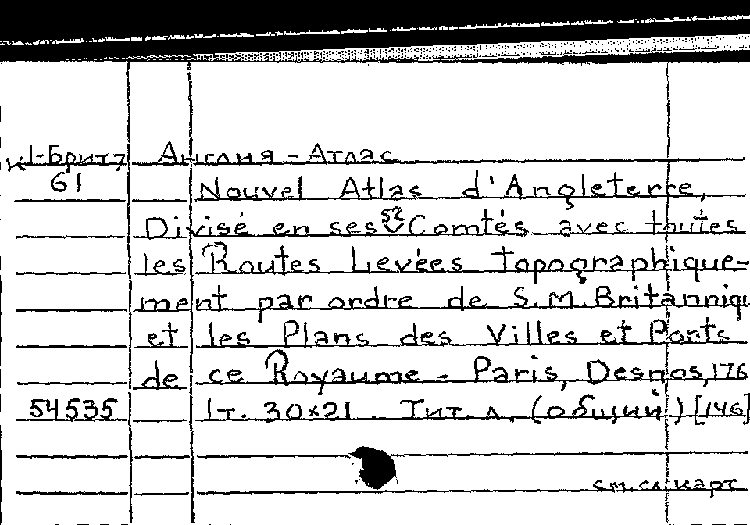 К1-Брит7 Англия - Атлас
61 Nouvel Atlas d'Angleterre,
Divisé en ses 52 Comtés avec toutes
les Routes Levées topographique-
ment par ordre de S.M. Britanniqu
et les Plans des Villes et Ports
de ce Royaume - Paris, Desnos, 176
54535 1т. 30x21. Тит. л. (общий) [146]
см. сл. карт